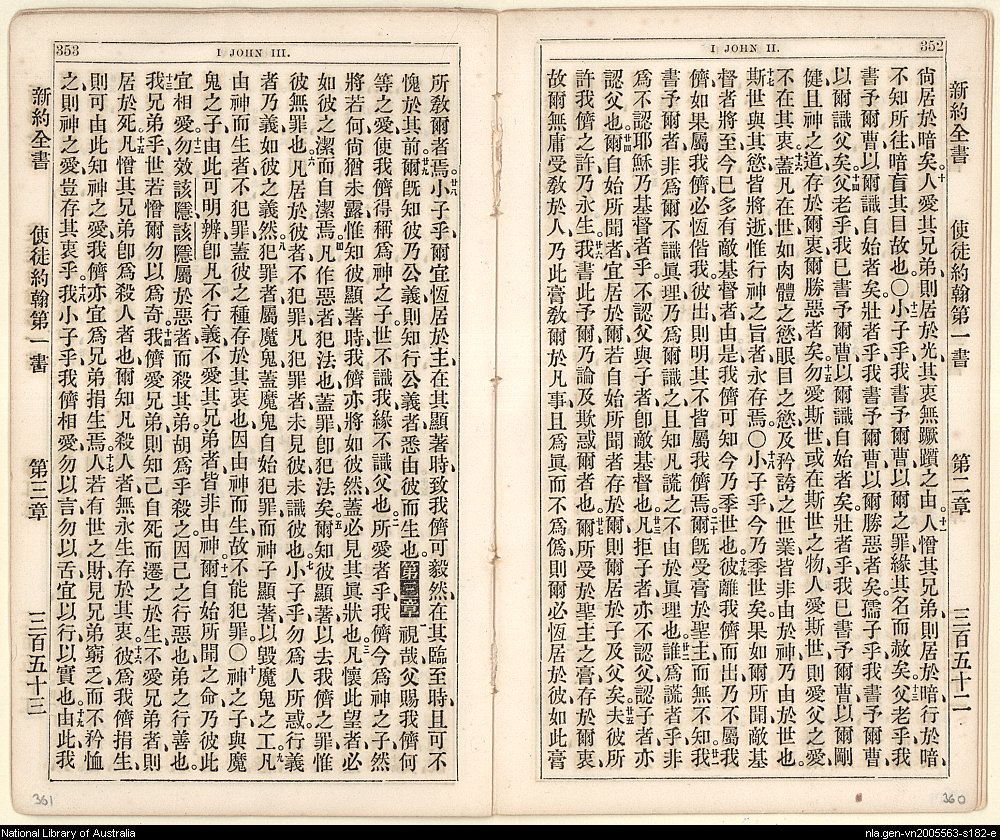 352
I JOHN II.
新約全書 使徒約翰第一書 第二章 三百五十二
尙居於暗矣。十人愛其兄弟、則居於光、其衷無蹶躓之由。十一人憎其兄弟、則居於暗、行於暗、
不知所往、暗盲其目故也。〇十二小子乎、我書予爾曹、以爾之罪、緣其名而赦矣。十三父老乎、我
書予爾曹、以爾識自始者矣、壯者乎、我書予爾曹、以爾勝惡者矣、孺子乎、我書予爾曹、
以爾識父矣。十四父老乎、我已書予爾曹、以爾識自始者矣、壯者乎、我已書予爾曹、以爾剛
健、且神之道、存於爾衷、爾勝惡者矣。十五勿愛斯世、或在斯世之物、人愛斯世、則愛父之愛、
不在其衷。十六蓋凡在世、如肉體之慾、眼目之慾、及矜誇之世業、皆非由於神、乃由於世也。
十七斯世與其慾、皆將逝、惟行神之旨者、永存焉。〇十八小子乎、今乃季世矣、果如爾所聞、敵基
督者將至、今已多有敵基督者、由是我儕可知今乃季世也。十九彼離我儕而出、乃不屬我
儕、如果屬我儕、必恆偕我、彼出則明其不皆屬我儕焉。二十爾旣受膏於聖主、而無不知。廿一我
書予爾者、非爲爾不識眞理、乃爲爾識之、且知凡謊之不由於眞理也。廿二誰爲謊者乎、非
爲不認耶穌乃基督者乎、不認父與子者、卽敵基督也。廿三凡拒子者、亦不認父、認子者、亦
認父也。廿四爾自始所聞者、宜居於爾、若自始所聞者、存於爾、則爾居於子及父矣。廿五夫彼所
許我儕之許、乃永生。廿六我書此予爾、乃論及欺惑爾者也。廿七爾所受於聖主之膏、存於爾衷、
故爾無庸受敎於人、乃此膏敎爾於凡事、且爲眞而不爲僞、則爾必恆居於彼、如此膏
360
353
I JOHN III.
所敎爾者焉。廿八小子乎、爾宜恆居於主、在其顯著時、致我儕可毅然、在其臨至時、且可不
愧於其前。廿九爾旣知彼乃公義、則知行公義者、悉由彼而生也。第三章 一視哉、父賜我儕何
等之愛、使我儕得稱爲神之子、世不識我、緣不識父也。二所愛者乎、我儕今爲神之子、然
將若何、尙猶未露、惟知彼顯著時、我儕亦將如彼然、蓋必見其眞狀也。三凡懷此望者、必
如彼之潔、而自潔焉。四凡作惡者、犯法也、蓋罪卽犯法矣。五爾知彼顯著、以去我儕之罪、惟
彼無罪也。六凡居於彼者、不犯罪、凡犯罪者、未見彼、未識彼也。七小子乎、勿爲人所惑、行義
者乃義、如彼之義然。八犯罪者、屬魔鬼、蓋魔鬼自始犯罪、而神子顯著、以毀魔鬼之工。九凡
由神而生者、不犯罪、蓋彼之種、存於其衷也、因由神而生、故不能犯罪。〇十神之子、與魔
鬼之子、由此可明辨、卽凡不行義、不愛其兄弟者、皆非由神。十一爾自始所聞之命、乃彼此
宜相愛。十二勿效該隱、該隱屬於惡者、而殺其弟、胡爲乎殺之、因己之行惡也、弟之行善也。
十三我兄弟乎、世若憎爾、勿以爲奇。十四我儕愛兄弟、則知己自死而遷之於生、不愛兄弟者、則
居於死。十五凡憎其兄弟、卽爲殺人者也、爾知凡殺人者、無永生存於其衷。十六彼爲我儕捐生、
則可由此知神之愛、我儕亦宜爲兄弟捐生焉。十七人若有世之財、見兄弟窮乏、而不矜恤
之、則神之愛、豈存其衷乎。十八我小子乎、我儕相愛、勿以言、勿以舌、宜以行、以實也。十九由此我
新約全書 使徒約翰第一書 第三章 三百五十三
361
National Library of Australia
nla.gen-vn2005563-s182-e